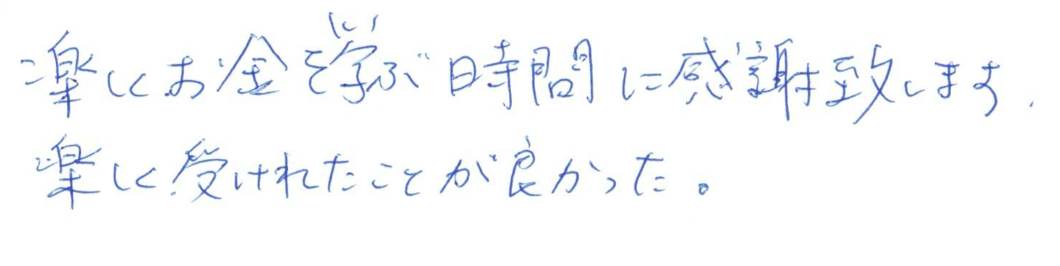 楽しくお金を学ぶ時間に感謝致します。
楽しく受けれたことが良かった。